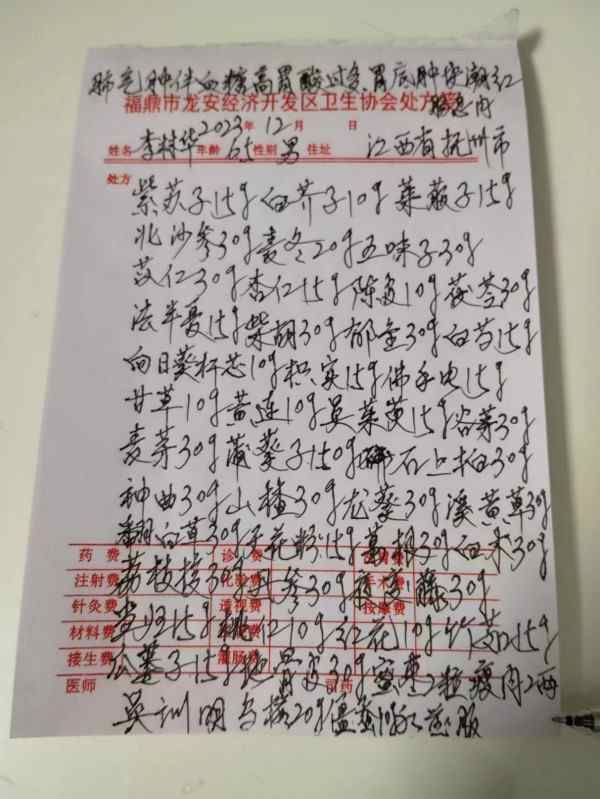 肺气肿伴血糖高胃酸过多胃底肿块潮红
福鼎市龙安经济开发区卫生协会处方笺
息肉
2023年12月 日
姓名 李 华 年龄 65 性别 男 住址 江西省抚州市
处方 紫苏子15g白芥子10g莱菔子15g
北沙参30g麦冬20g五味子30g
苡仁30g杏仁15g陈皮10g茯苓30g
法半夏15g柴胡30g郁金30g白芍15g
向日葵杆芯10g枳实15g佛手 15g
甘草10g黄连10g吴茱萸15g谷芽30g
麦芽30g蒲葵子150g石上柏30g
神曲30g山楂30g龙葵30g溪黄草30g
翻白草30g天花粉15g 胡30g白术30g
药费 诊费
荔枝核30g丹参30g 藤30g
注射费 化验费 手术费
针灸费 透视费 按摩费
当归15g桃仁10g红花10g竹茹15g
材料费
瓜蒌子15g地骨皮30g蜜枣2粒瘦肉2两
接生费 灌肠费
医师 司药
吴训明 20g僵蚕10 服